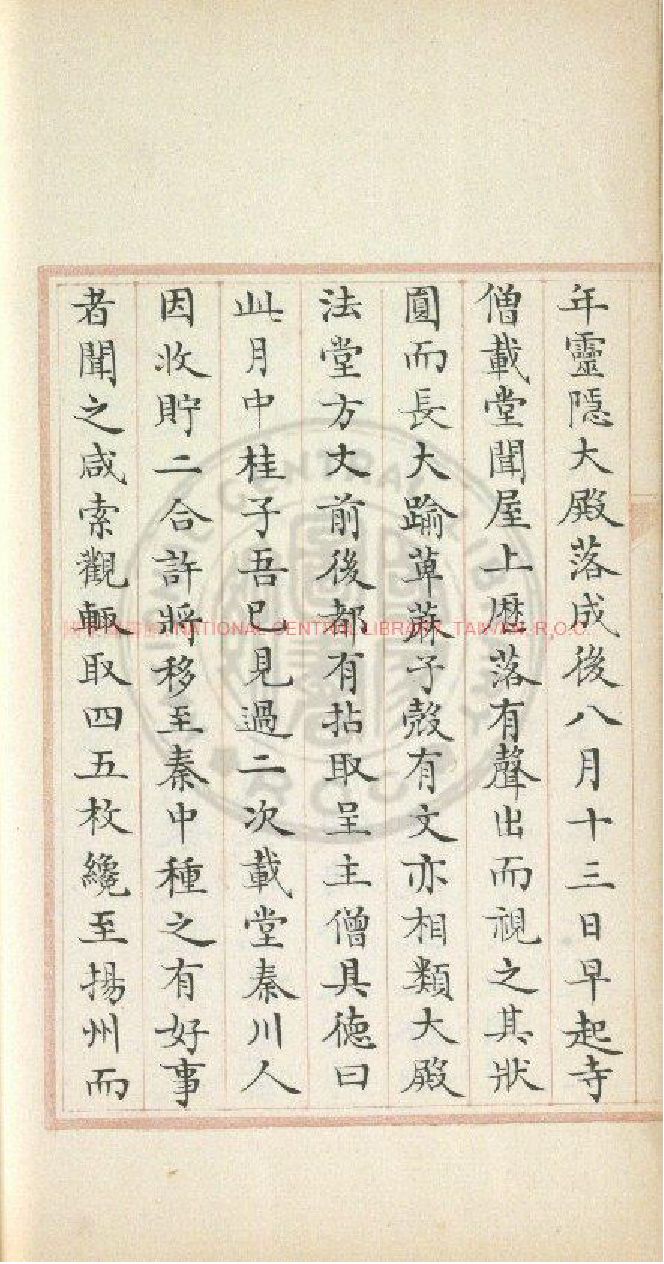 年靈隱大殿落成後八月十三日早起寺
僧載堂聞屋上歷落有聲出而視之其狀
圓而長大踰萆蔴子殻有文亦相類大殿
法堂方丈前後都有拈取呈主僧具德曰
此月中桂子吾已見過二次載堂秦川人
因收貯二合許將移至秦中種之有好事
者聞之咸索觀輙取四五枚纔至揚州而
NATIONAL CENTRAL LIBRARY, TAIWAN, R.O.C.